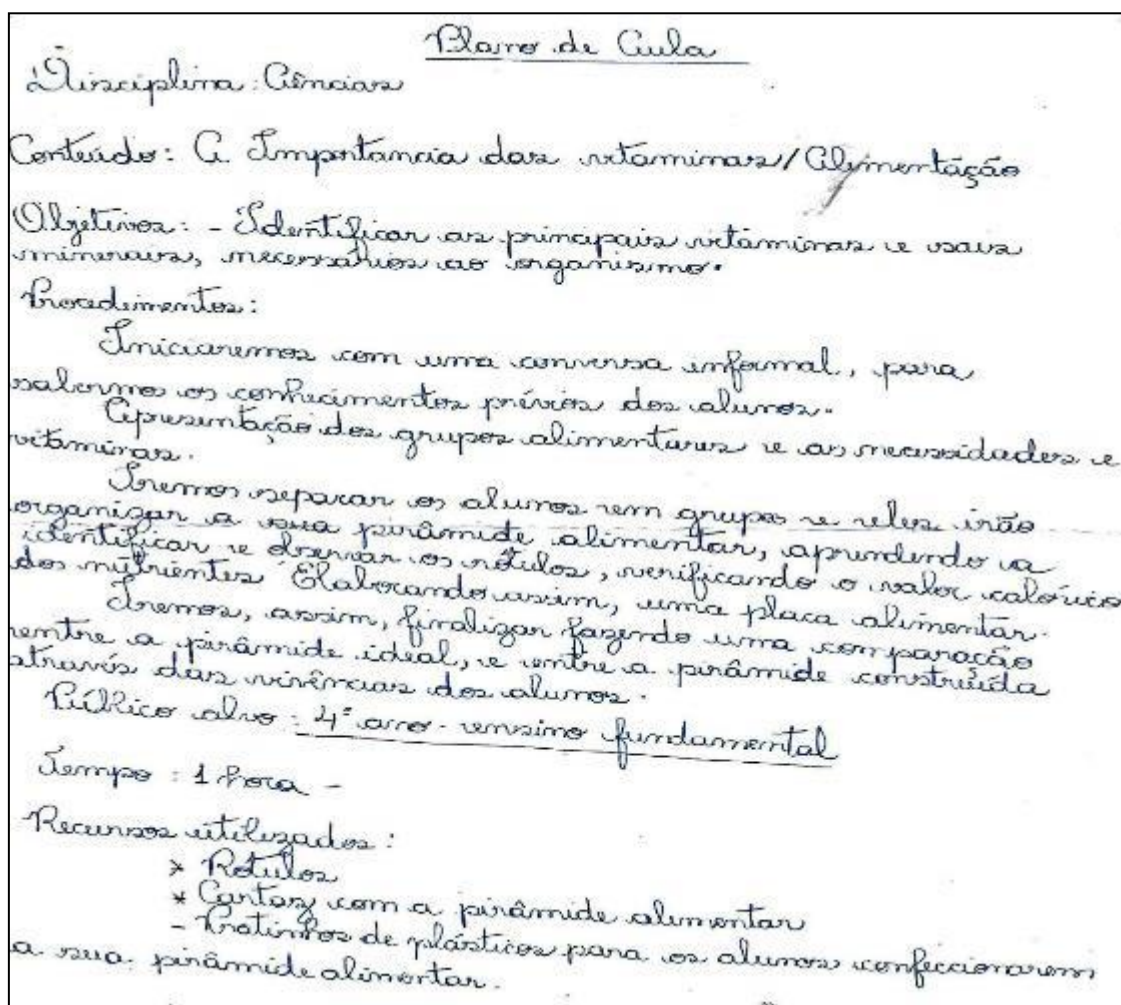 Plano de Aula
Disciplina: Ciências
Conteúdo: A Importancia das vitaminas/Alimentação
Objetivos: - Identificar as principais vitaminas e sais
minerais, necessários ao organismo.
Procedimentos:
Iniciaremos com uma conversa informal, para
sabermos os conhecimentos prévios dos alunos.
Apresentação dos grupos alimentares e as necessidades e
vitaminas.
Iremos separar os alunos em grupos e eles irão
organizar a sua pirâmide alimentar, aprendendo a
identificar e observar os rótulos, verificando o valor calórico
dos nutrientes Elaborando assim, uma placa alimentar.
Iremos, assim, finalizar fazendo uma comparação
entre a pirâmide ideal, e entre a pirâmide construída
através das vivências dos alunos.
Público alvo: 4º ano - ensino fundamental
Tempo: 1 hora -
Recursos utilizados:
* Rótulos
* Cartaz com a pirâmide alimentar
- Pratinhos de plásticos para os alunos confeccionarem
a sua pirâmide alimentar.